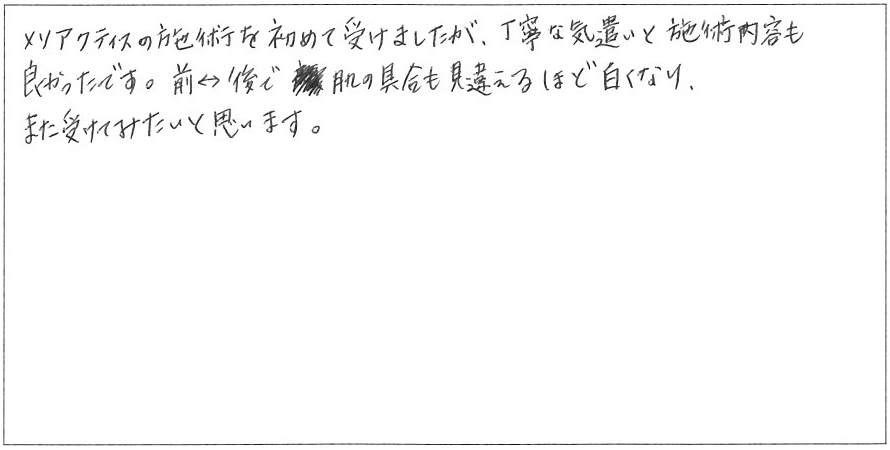 メソアクティスの施術を初めて受けましたが、丁寧な気遣いと施術内容も
良かったです。前↔後で 肌の具合も見違えるほど白くなり、
また受けてみたいと思います。